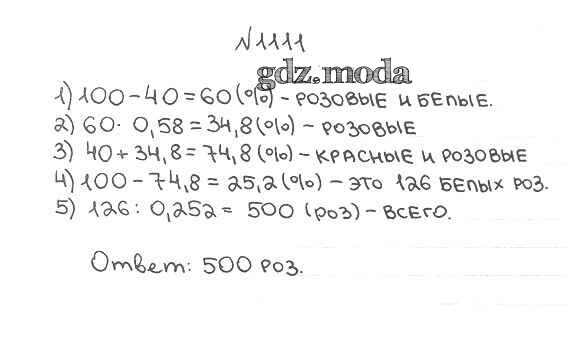 №1111
gdz.moda
1) 100 - 40 = 60 (%) - РОЗОВЫЕ И БЕЛЫЕ.
2) 60 · 0,58 = 34,8 (%) - РОЗОВЫЕ
3) 40 + 34,8 = 74,8 (%) - КРАСНЫЕ И РОЗОВЫЕ
4) 100 - 74,8 = 25,2 (%) - ЭТО 126 БЕЛЫХ РОЗ.
5) 126 : 0,252 = 500 (РОЗ) - ВСЕГО.
Ответ: 500 РОЗ.